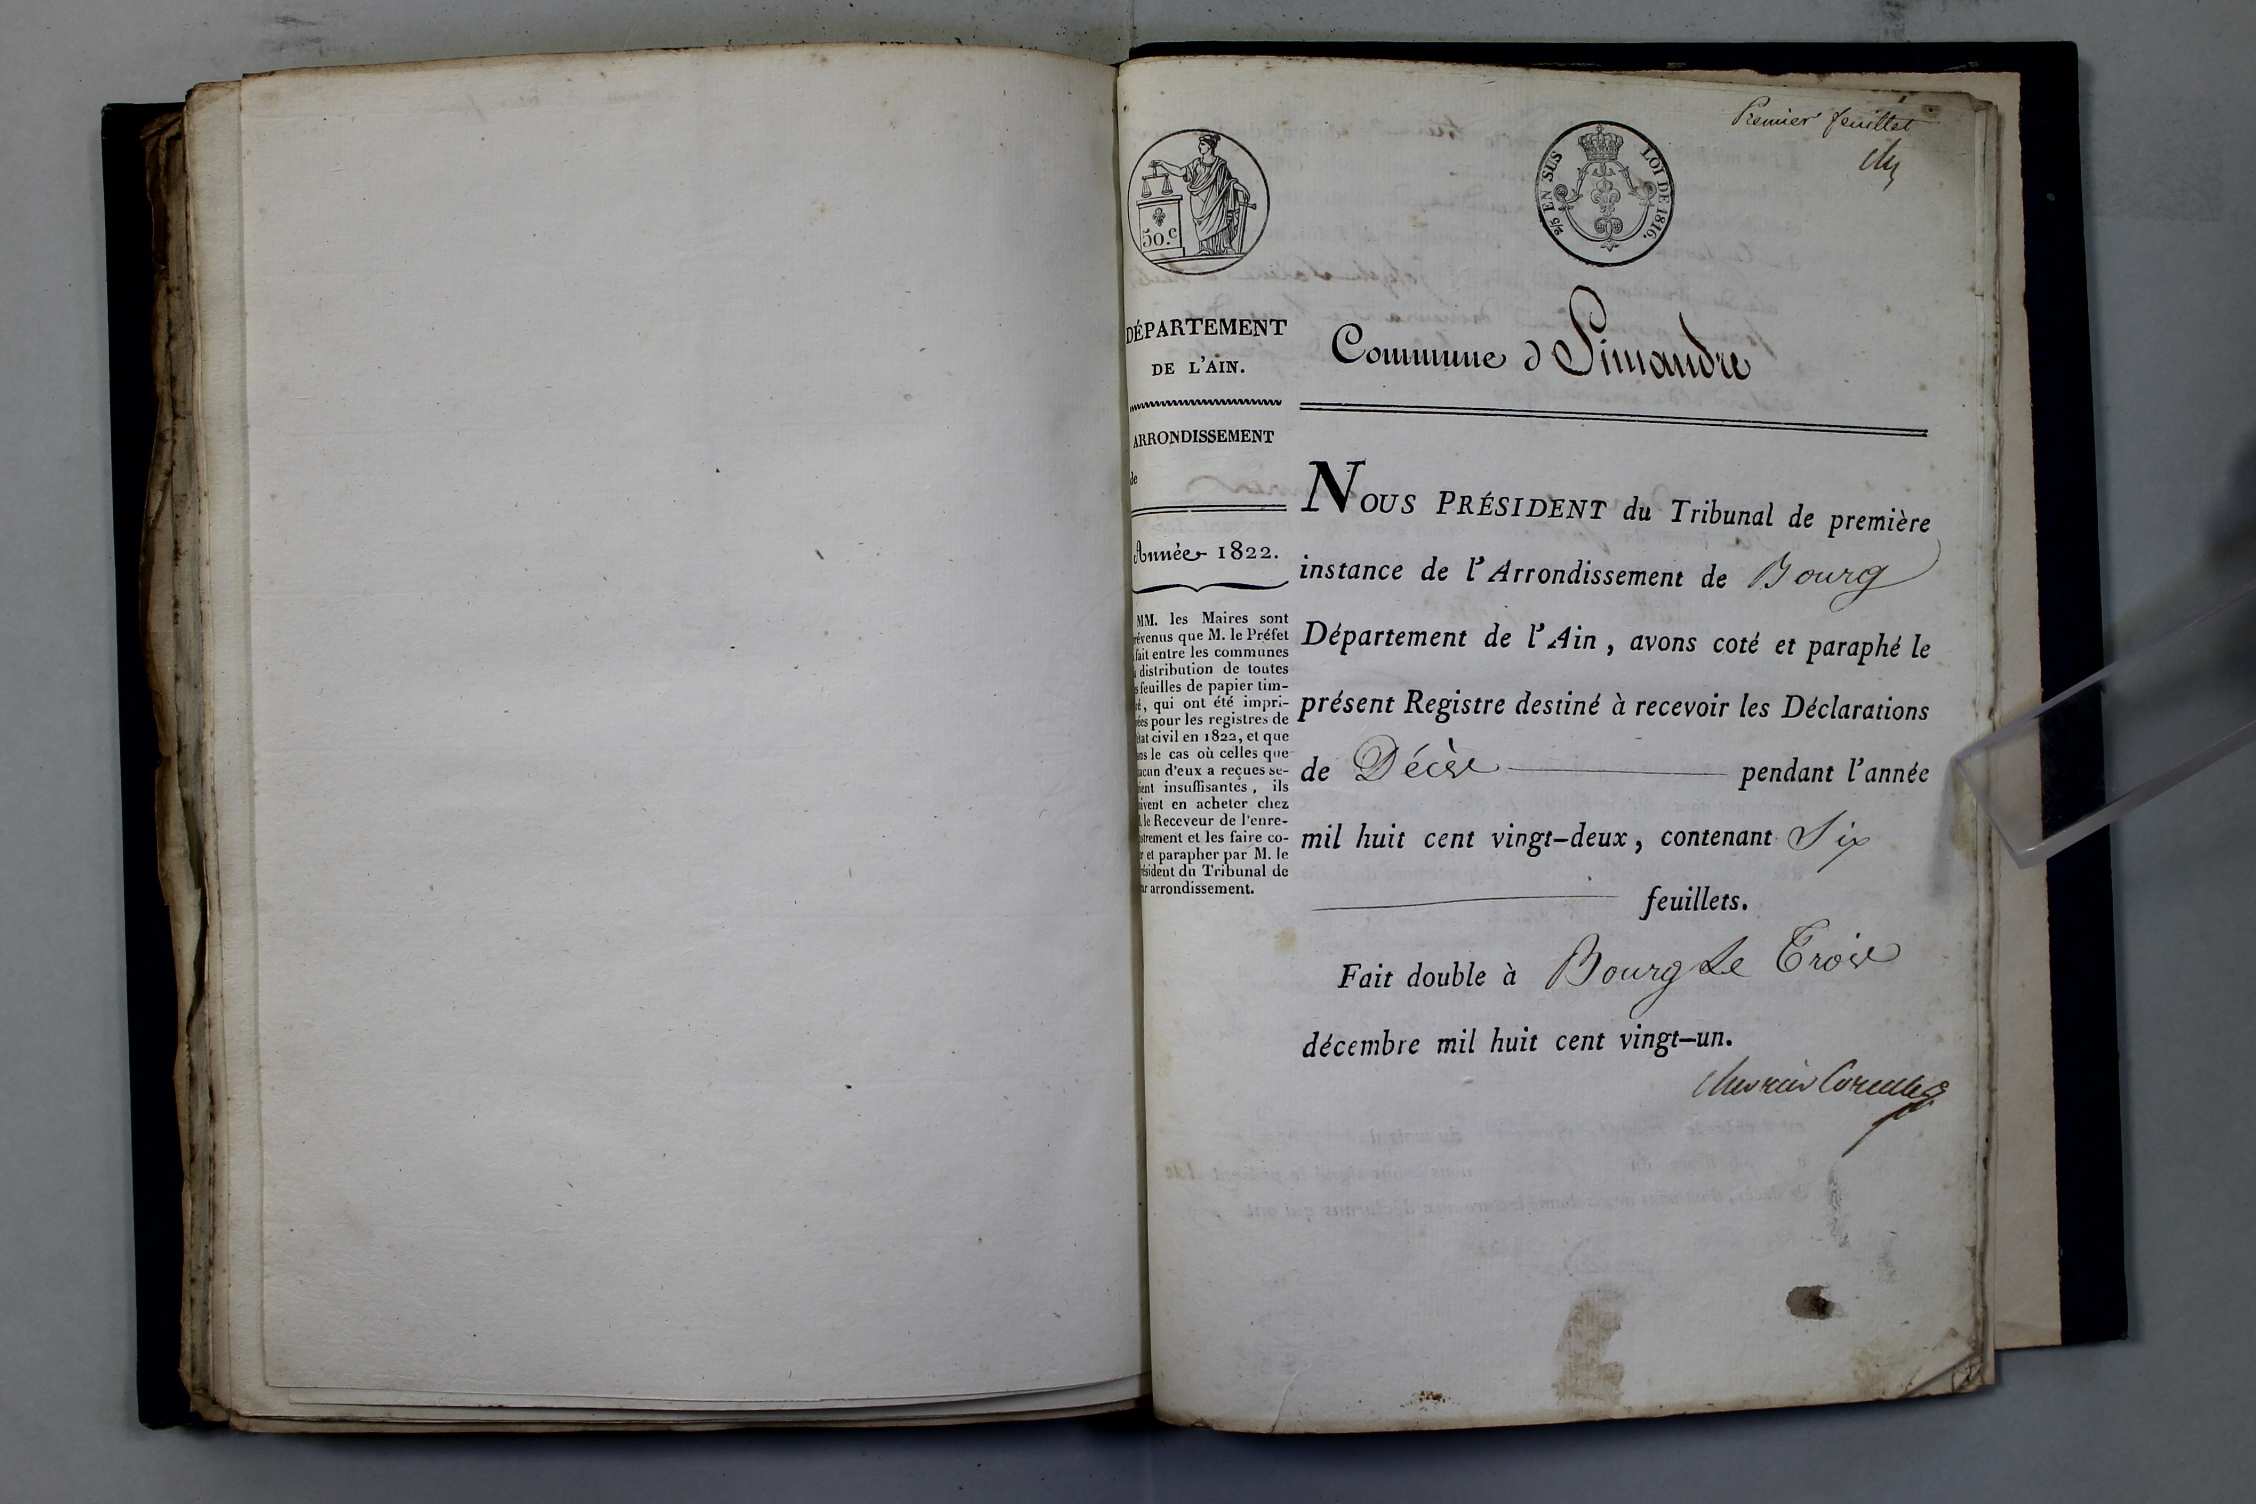 Premier feuillet
50.c
2/5 EN SUS
LOI DE 1816.
DÉPARTEMENT
DE L'AIN.
ARRONDISSEMENT
de
Année 1822.
MM. les Maires sont
révenus que M. le Préfet
fait entre les communes
a distribution de toutes
s feuilles de papier tim-
ré, qui ont été impri-
ées pour les registres de
état civil en 1822, et que
ans le cas où celles que
acun d'eux a reçues se-
ient insuffisantes, ils
oivent en acheter chez
M. le Receveur de l'enre-
istrement et les faire co-
r et parapher par M. le
résident du Tribunal de
ur arrondissement.
Commune d Simandre
NOUS PRÉSIDENT du Tribunal de première
instance de l'Arrondissement de Bourg
Département de l'Ain, avons coté et paraphé le
présent Registre destiné à recevoir les Déclarations
de Décès pendant l'année
mil huit cent vingt-deux, contenant Six
feuillets.
Fait double à Bourg Le Trois
décembre mil huit cent vingt-un.